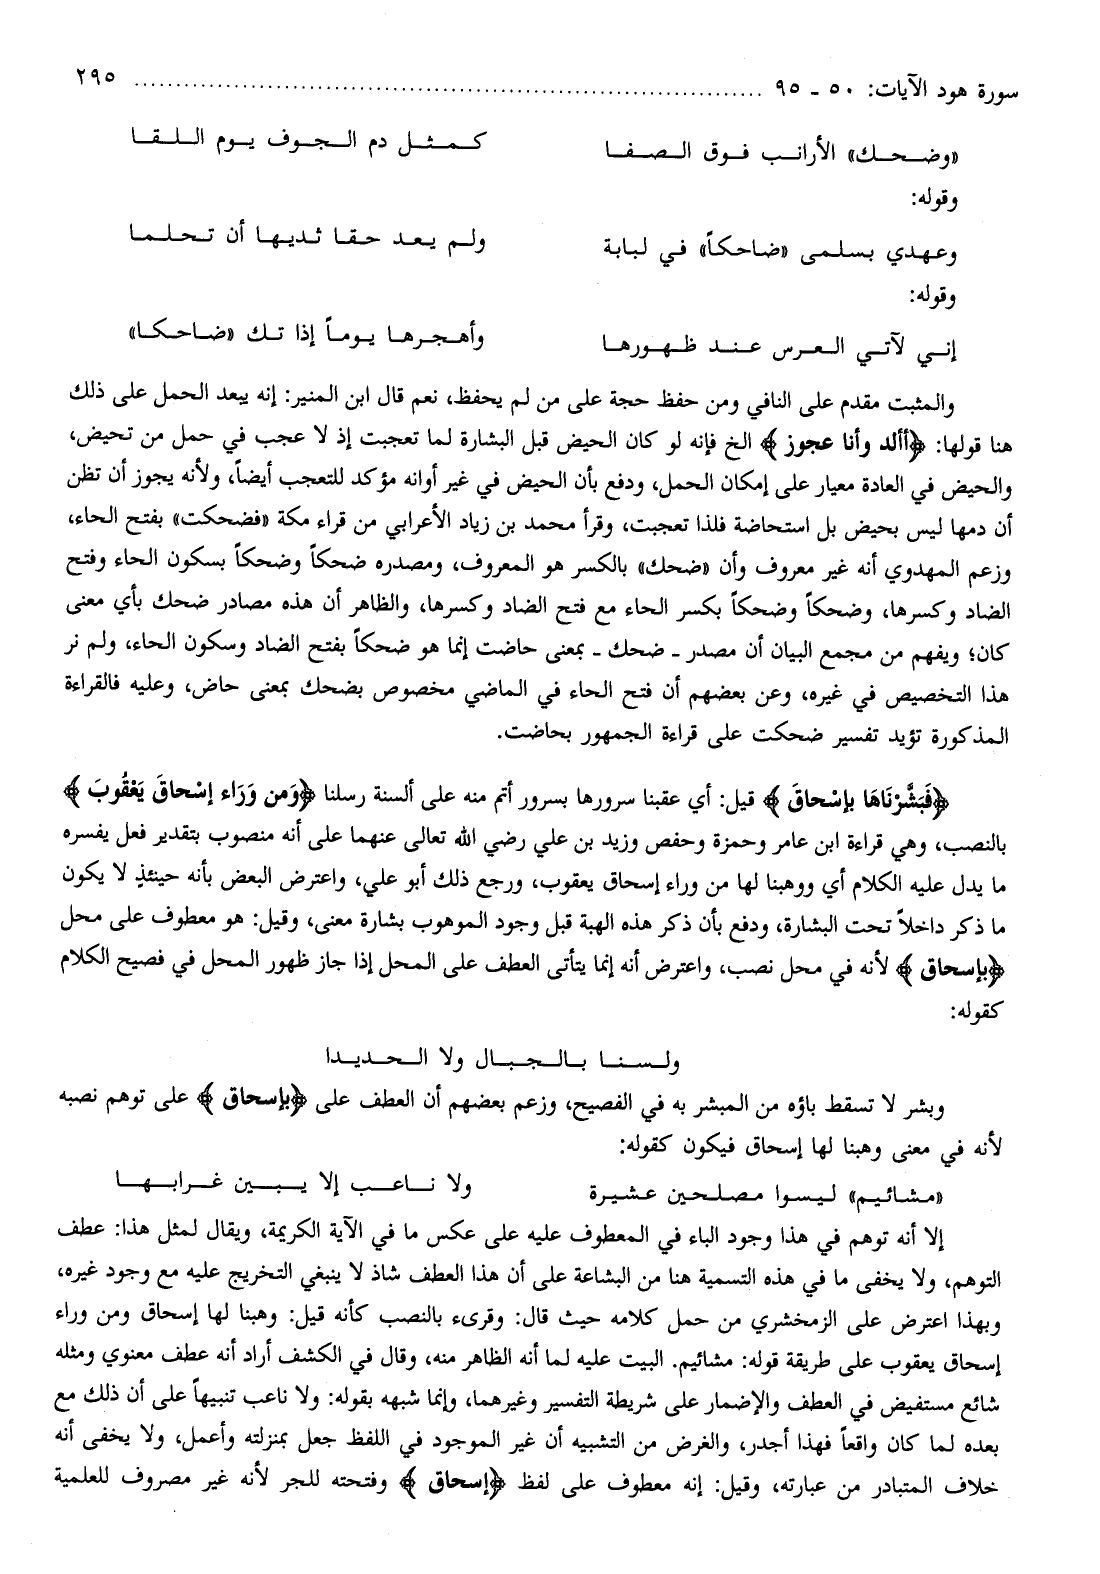 سورة هود الآيات: ٥٠ - ٩٥ ........................................ ٢٩٥
«وضحك» الأرانب فوق الصفا كمثل دم الجوف يوم اللقا
وقوله:
وعهدي بسلمى «ضاحكاً» في لبابة ولم يعد حقا ثديها أن تحلما
وقوله:
إني لآتي العرس عند ظهورها وأهجرها يوماً إذا تك «ضاحكا»
والمثبت مقدم على النافي ومن حفظ حجة على من لم يحفظ، نعم قال ابن المنير: إنه يبعد الحمل على ذلك
هنا قولها: ﴿أألد وأنا عجوز﴾ الخ فإنه لو كان الحيض قبل البشارة لما تعجبت إذ لا عجب في حمل من تحيض،
والحيض في العادة معيار على إمكان الحمل، ودفع بأن الحيض في غير أوانه مؤكد للتعجب أيضاً، ولأنه يجوز أن تظن
أن دمها ليس بحيض بل استحاضة فلذا تعجبت، وقرأ محمد بن زياد الأعرابي من قراء مكة «فضحكت» بفتح الحاء،
وزعم المهدوي أنه غير معروف وأن «ضحك» بالكسر هو المعروف، ومصدره ضحكاً وضحكاً بسكون الحاء وفتح
الضاد وكسرها، وضحكاً وضحكاً بكسر الحاء مع فتح الضاد وكسرها، والظاهر أن هذه مصادر ضحك بأي معنى
كان؛ ويفهم من مجمع البيان أن مصدر - ضحك - بمعنى حاضت إنما هو ضحكاً بفتح الضاد وسكون الحاء، ولم نر
هذا التخصيص في غيره، وعن بعضهم أن فتح الحاء في الماضي مخصوص بضحك بمعنى حاض، وعليه فالقراءة
المذكورة تؤيد تفسير ضحكت على قراءة الجمهور بحاضت.
﴿فَبَشَّرْنَاهَا بإسْحاقَ﴾ قيل: أي عقبنا سرورها بسرور أتم منه على ألسنة رسلنا ﴿وَمن وَرَاء إسْحاقَ يَعْقُوبَ﴾
بالنصب، وهي قراءة ابن عامر وحمزة وحفص وزيد بن علي رضي الله تعالى عنهما على أنه منصوب بتقدير فعل يفسره
ما يدل عليه الكلام أي ووهبنا لها من وراء إسحاق يعقوب، ورجح ذلك أبو علي، واعترض البعض بأنه حينئذٍ لا يكون
ما ذكر داخلاً تحت البشارة، ودفع بأن ذكر هذه الهبة قبل وجود الموهوب بشارة معنى، وقيل: هو معطوف على محل
﴿بإسحاق﴾ لأنه في محل نصب، واعترض أنه إنما يتأتى العطف على المحل إذا جاز ظهور المحل في فصيح الكلام
كقوله:
ولسنا بالجبال ولا الحديدا
وبشر لا تسقط باؤه من المبشر به في الفصيح، وزعم بعضهم أن العطف على ﴿بإسحاق﴾ على توهم نصبه
لأنه في معنى وهبنا لها إسحاق فيكون كقوله:
«مشائيم» ليسوا مصلحين عشيرة ولا ناعب إلا يبين غرابها
إلا أنه توهم في هذا وجود الباء في المعطوف عليه على عكس ما في الآية الكريمة، ويقال لمثل هذا: عطف
التوهم، ولا يخفى ما في هذه التسمية هنا من البشاعة على أن هذا العطف شاذ لا ينبغي التخريج عليه مع وجود غيره،
وبهذا اعترض على الزمخشري من حمل كلامه حيث قال: وقرىء بالنصب كأنه قيل: وهبنا لها إسحاق ومن وراء
إسحاق يعقوب على طريقة قوله: مشائيم. البيت عليه لما أنه الظاهر منه، وقال في الكشف أراد أنه عطف معنوي ومثله
شائع مستفيض في العطف والإضمار على شريطة التفسير وغيرهما، وإنما شبهه بقوله: ولا ناعب تنبيهاً على أن ذلك مع
بعده لما كان واقعاً فهذا أجدر، والغرض من التشبيه أن غير الموجود في اللفظ جعل بمنزلته وأعمل، ولا يخفى أنه
خلاف المتبادر من عبارته، وقيل: إنه معطوف على لفظ ﴿إسحاق﴾ وفتحته للجر لأنه غير مصروف للعلمية